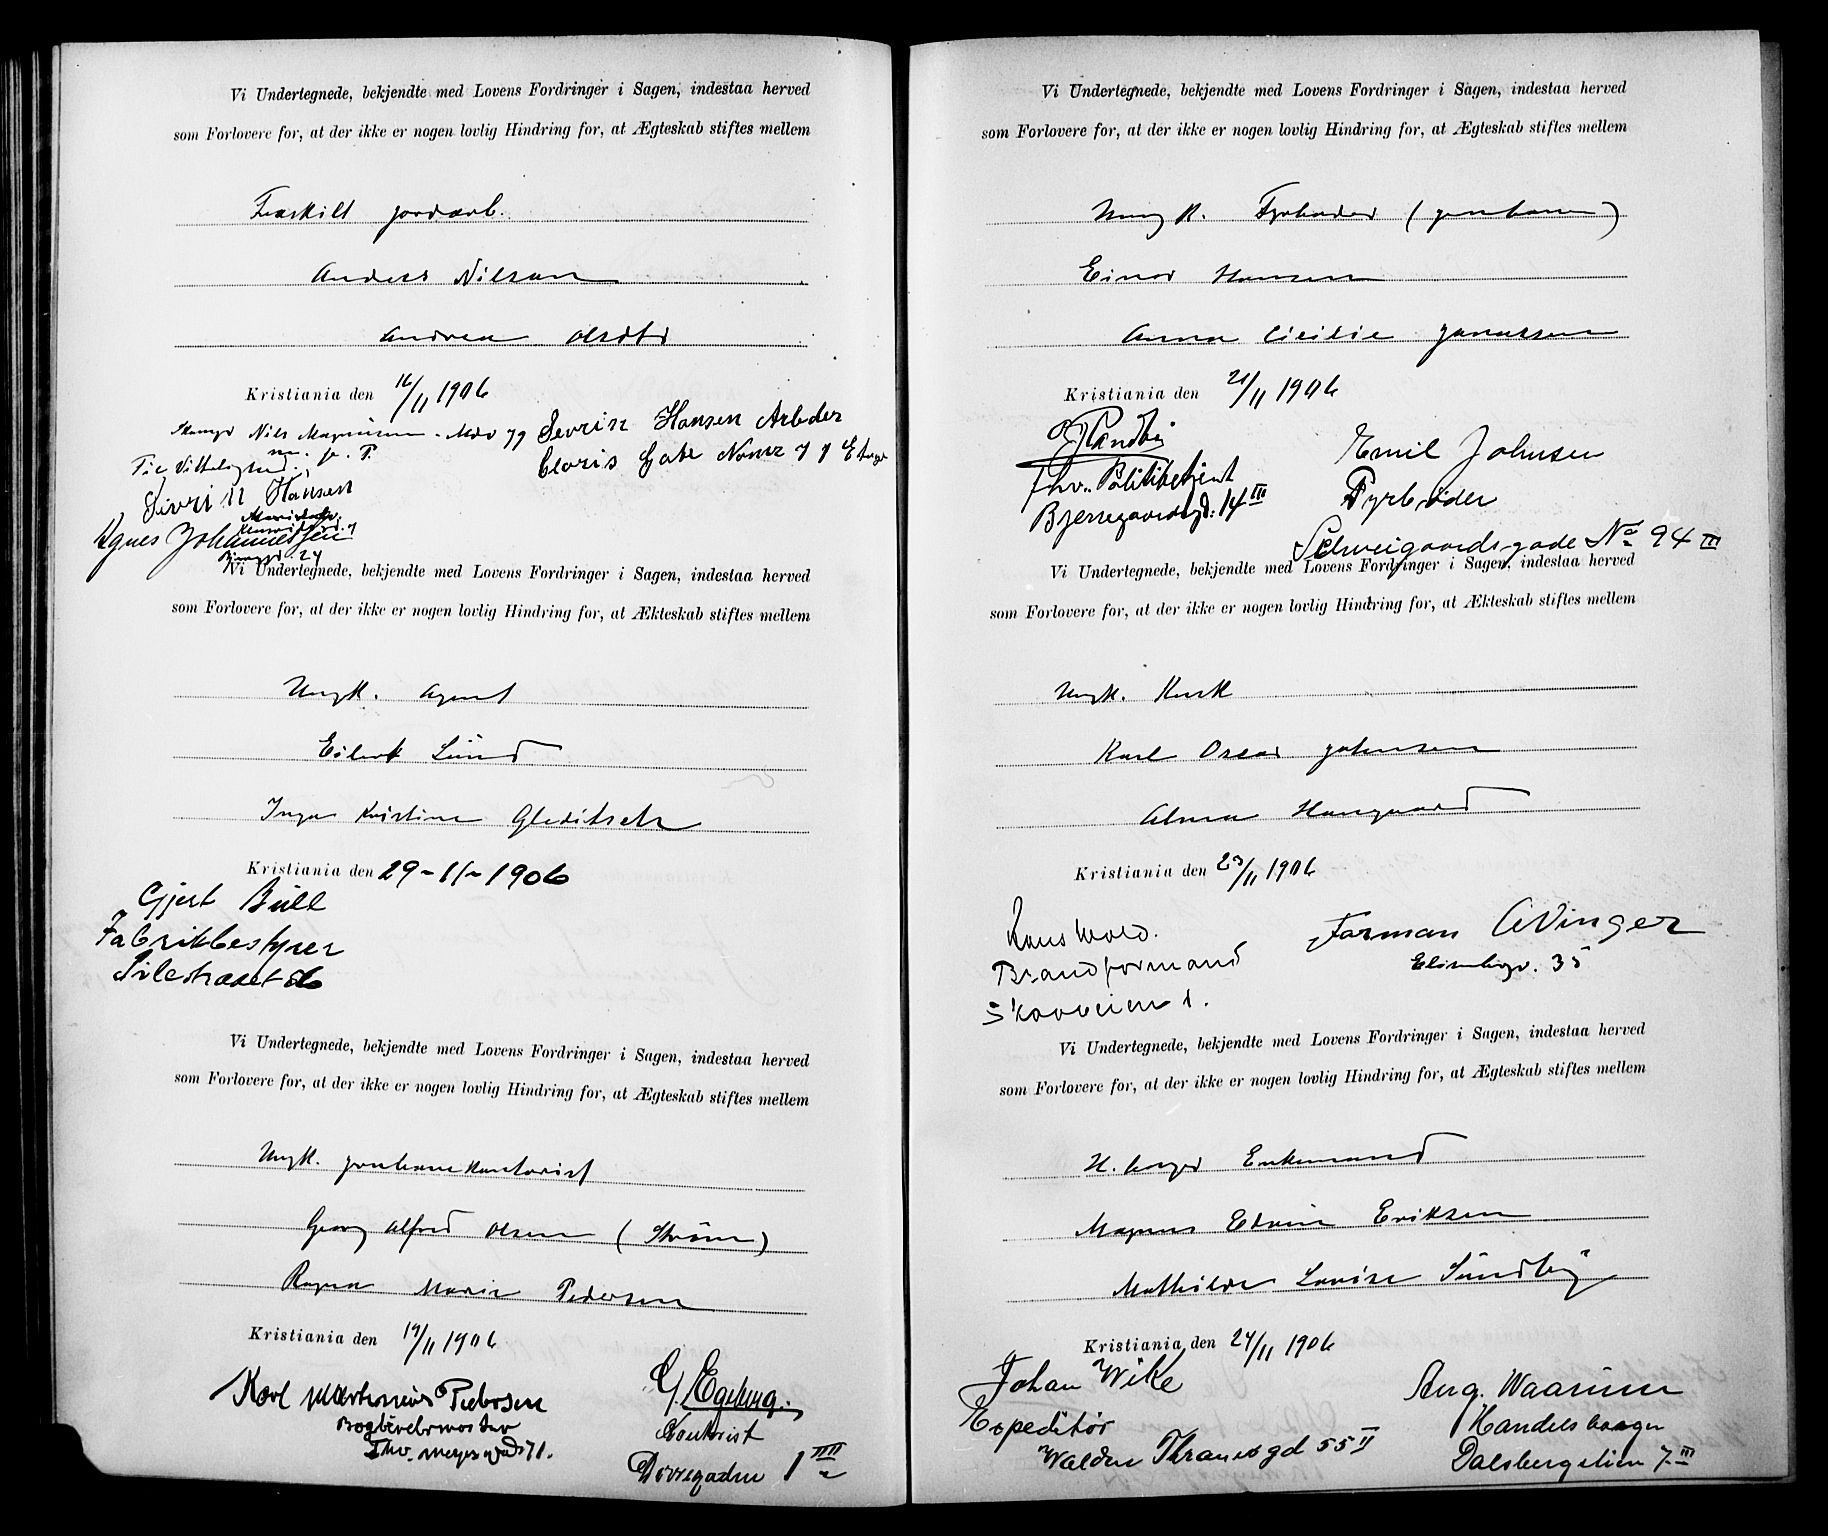 Vi Undertegnede, bekjendte med Lovens Fordringer i Sagen, indestaa herved
som Forlovere for, at der ikke er nogen lovlig Hindring for, at Ægteskab stiftes mellem
Fraskilt jordarb.
Anders Nilsson
Andrea Olsdtr
Kristiania den 16/11 1906
Nils Magnussen
Sevrin Hansen Arbeder
m. f. P.
Gate
Til Vitterlighed:
Sevrin Hansen
Agnes Johannessen
Vi Undertegnede, bekjendte med Lovens Fordringer i Sagen, indestaa herved
som Forlovere for, at der ikke er nogen lovlig Hindring for, at Ækteskab stiftes mellem
Ungk. Agent
Eilert Lund
Inga Kristine Gleditsch
Kristiania den 29-11-1906
Gjert Bull
Fabrikbestyrer
Pilestrædet
Vi Undertegnede, bekjendte med Lovens Fordringer i Sagen, indestaa herved
som Forlovere for, at der ikke er nogen lovlig Hindring for, at Ægteskab stiftes mellem
Ungk. jernbanekontorist
Georg Alfred Olsen (Strøm)
Ragna Marie Pedersen
Kristiania den 19/11 1906
Karl Martinius Pedersen
Thv. Meyers gade 71.
G. Egeberg.
Kontorist
Dovregaden 1 IIII
Vi Undertegnede, bekjendte med Lovens Fordringer i Sagen, indestaa herved
som Forlovere for, at der ikke er nogen lovlig Hindring for, at Ægteskab stiftes mellem
Ungk. Fyrbøder (jernbanen)
Einar Hansen
Anna Cicilie Jonassen
Kristiania den 21/11 1906
fhv. Politibetjent
Bjerregaardsgd: 14 III
Emil Johnsen
Fyrbøder
Schweigaardsgade No 94 III
Vi Undertegnede, bekjendte med Lovens Fordringer i Sagen, indestaa herved
som Forlovere for, at der ikke er nogen lovlig Hindring for, at Ækteskab stiftes mellem
Ungk. Kusk
Karl Oscar Johnsen
Alma Haugaard
Kristiania den 23/11 1906
Brandformand
Skovveien 1.
Forman A Vinger
35
Vi Undertegnede, bekjendte med Lovens Fordringer i Sagen, indestaa herved
som Forlovere for, at der ikke er nogen lovlig Hindring for, at Ægteskab stiftes mellem
Enkemand
Magnus Edvin Eriksen
Mathilde Lovise Sundby
Kristiania den 24/11 1906
Johan Wike
Expeditør
Waldm Thranesgd 55 II
Aug. Waarum
Handelsborger
Dalsbergstien 7 III